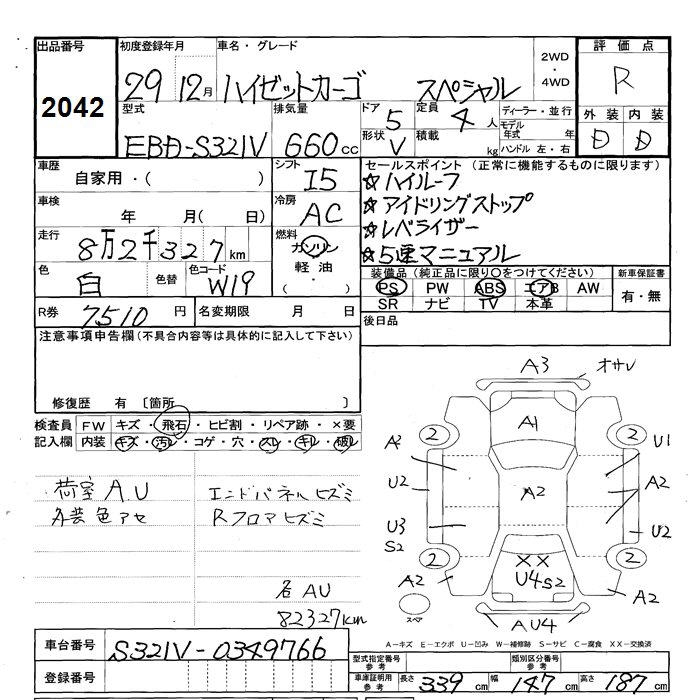 出品番号
2042
初度登録年月
29 12月
車名・グレード
ハイゼットカーゴ スペシャル
2WD
・
4WD
評価点
R
外装 内装
D D
型式
EBD-S321V
排気量
660cc
ドア 5
形状 V
定員 4人
積載 kg
ディーラー・並行
モデル年式 年
ハンドル 左・右
車歴
自家用・( )
シフト
I5
セールスポイント (正常に機能するものに限ります)
☆ハイルーフ
☆アイドリングストップ
☆レベライザー
☆5速マニュアル
車検
年 月( 日)
冷房
AC
走行
8万2千327km
燃料
ガソリン
軽油・
( )
色
白 色替
色コード
W19
装備品(純正品に限り○をつけてください)
PS PW ABS エアB AW
SR ナビ TV 本革
新車保証書
有・無
R券 7510円
名変期限 月 日
後日品
注意事項申告欄(不具合内容等は具体的に記入して下さい)
修復歴 有 〔箇所 〕
検査員記入欄
FW キズ・飛石・ヒビ割・リペア跡・×要
内装 キズ・汚レ・コゲ・穴・スレ・キレ・破レ
荷室 A.U
内装色アセ
エンドパネルヒズミ
Rフロアヒズミ
名AU
82327km
A3 オサレ
A1
2 2
A2 U1
U2 A2 A2
U3 U2
S2
2 2
××
U4S2
A2 A2
スペア
AU4
A−キズ E−エクボ U−凹み W−補修跡 S−サビ C−腐食 XX−交換済
車台番号
S321V-0349766
登録番号
型式指定番号参考
類別区分番号参考
車庫証明用参考 長さ 339cm 幅 147cm 高さ 187cm